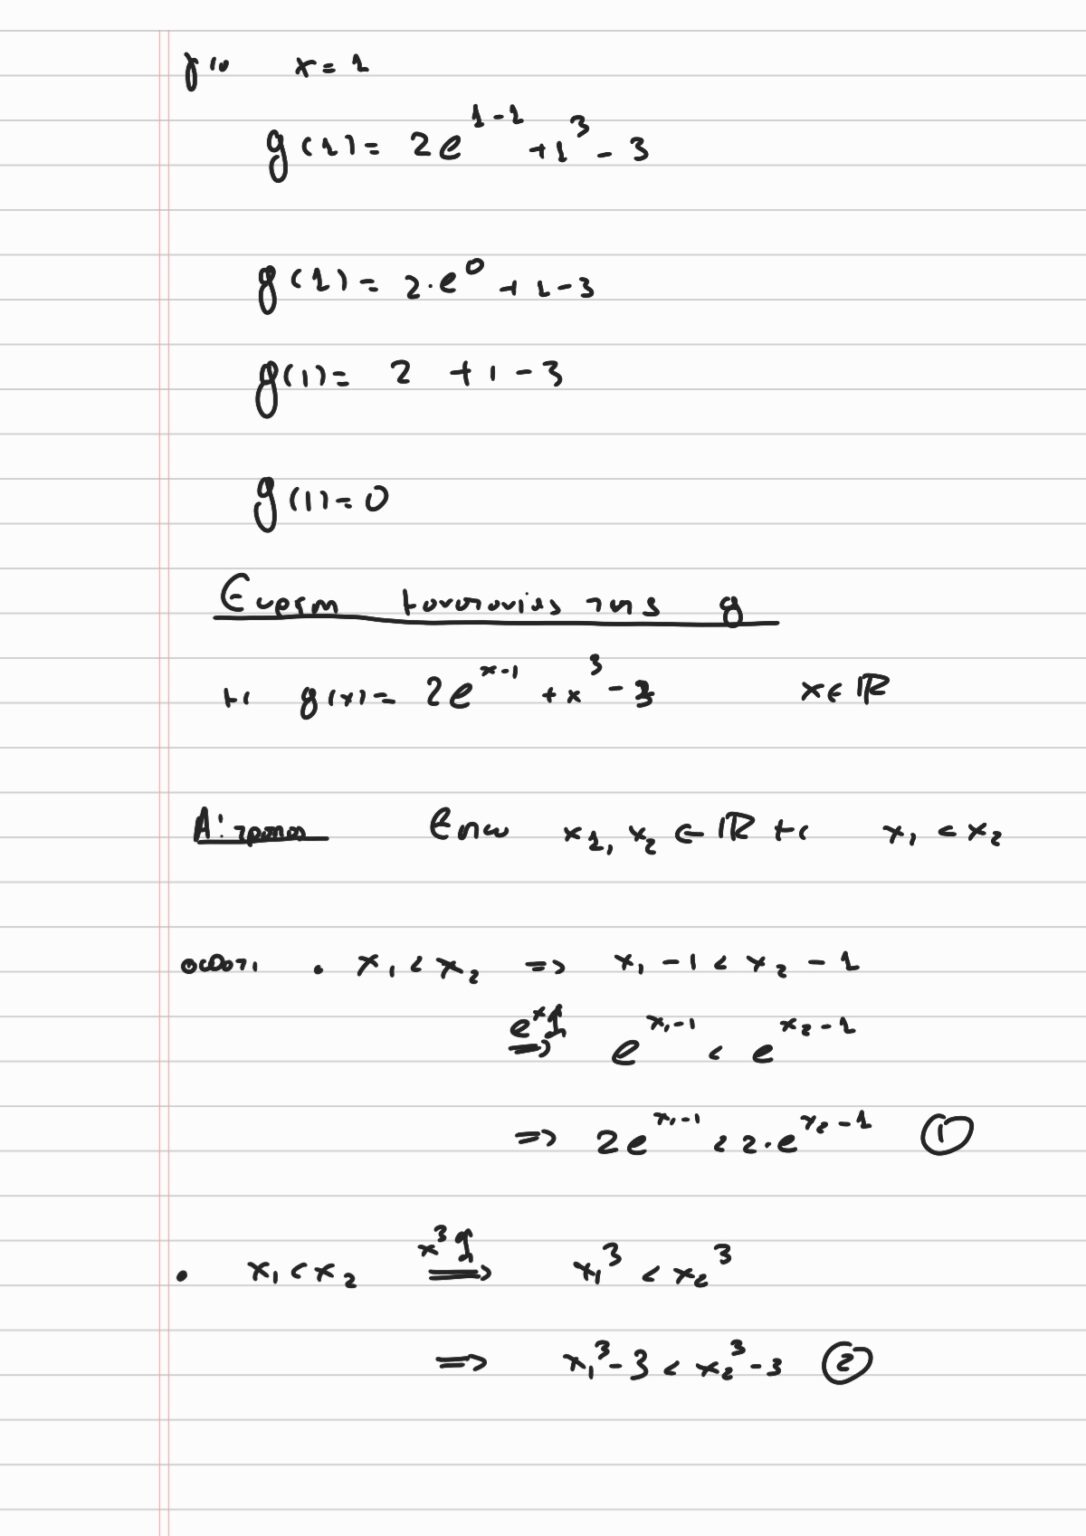 για x = 1
g(1) = 2e^{1-1} + 1^3 - 3
g(1) = 2·e^0 + 1 - 3
g(1) = 2 + 1 - 3
g(1) = 0
Ευρεση μονοτονιας της g
με g(x) = 2e^{x-1} + x^3 - 3 x ∈ ℝ
Α' τροπος Εστω x_1, x_2 ∈ ℝ με x_1 < x_2
• x_1 < x_2 ⇒ x_1 - 1 < x_2 - 1
e^x↑ ⇒ e^{x_1-1} < e^{x_2-1}
⇒ 2e^{x_1-1} < 2·e^{x_2-1} ①
• x_1 < x_2 x^3↑ ⇒ x_1^3 < x_2^3
⇒ x_1^3 - 3 < x_2^3 - 3 ②